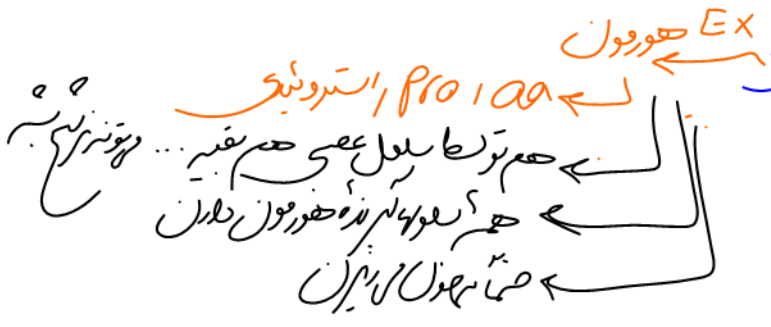 Ex هورمون
aa ، Pro ، استروئیدی
هم توسط سلول عصبی هم بقیه ... میتونه ترشح بشه
همهٔ سلولها گیرندهٔ هورمون دارن
حتماً به خون می‌ریزن